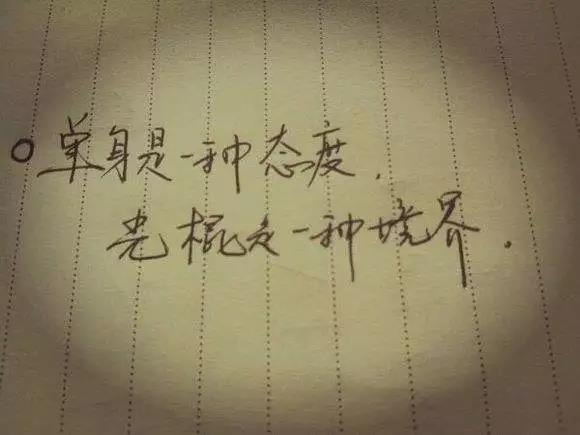 单身是一种态度.
光棍是一种境界.